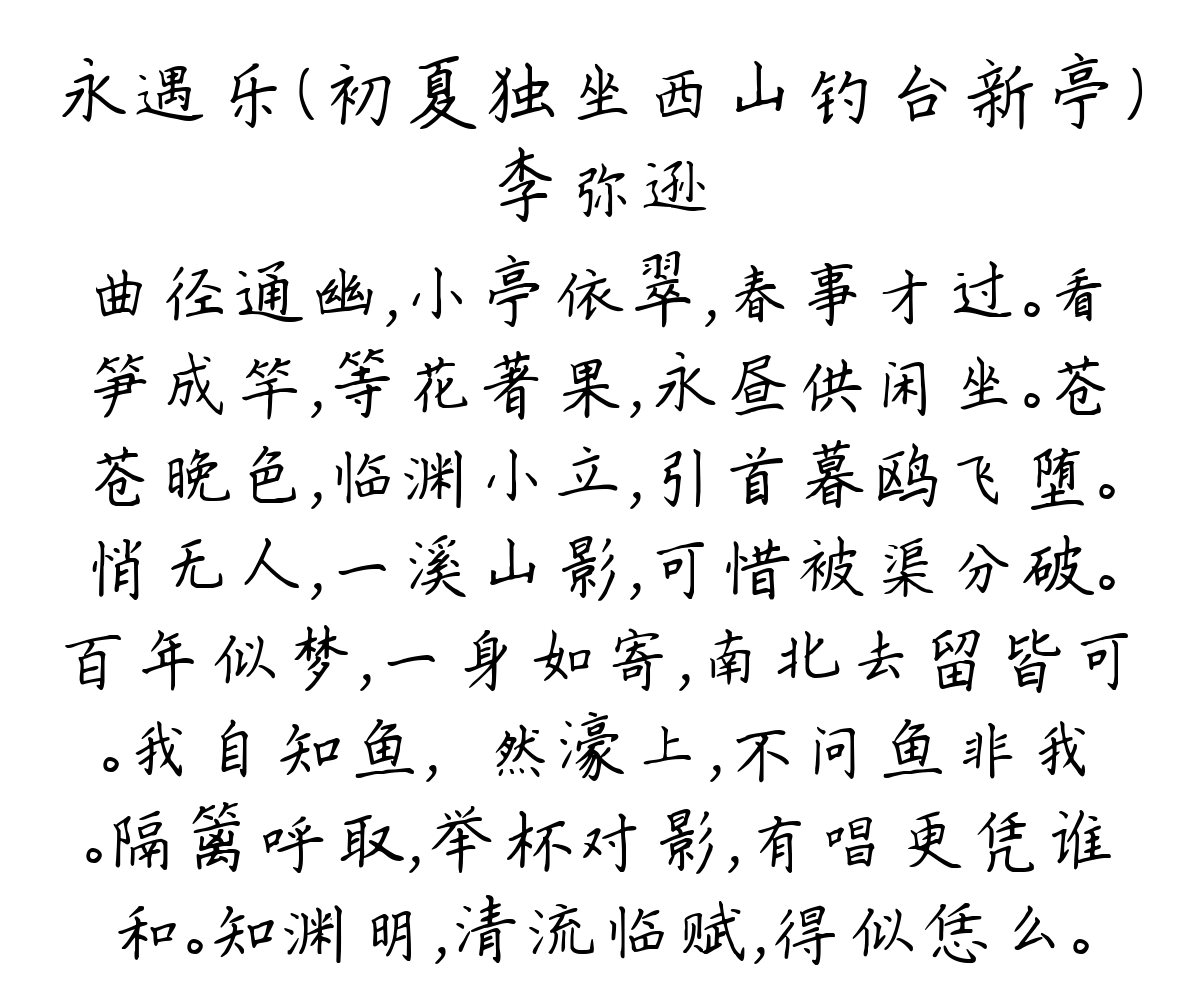 永遇乐(初夏独坐西山钓台新亭)
李弥逊
曲径通幽,小亭依翠,春事才过。看
笋成竿,等花著果,永昼供闲坐。苍
苍晚色,临渊小立,引首暮鸥飞堕。
悄无人,一溪山影,可惜被渠分破。
百年似梦,一身如寄,南北去留皆可
。我自知鱼, 然濠上,不问鱼非我
。隔篱呼取,举杯对影,有唱更凭谁
和。知渊明,清流临赋,得似恁么。